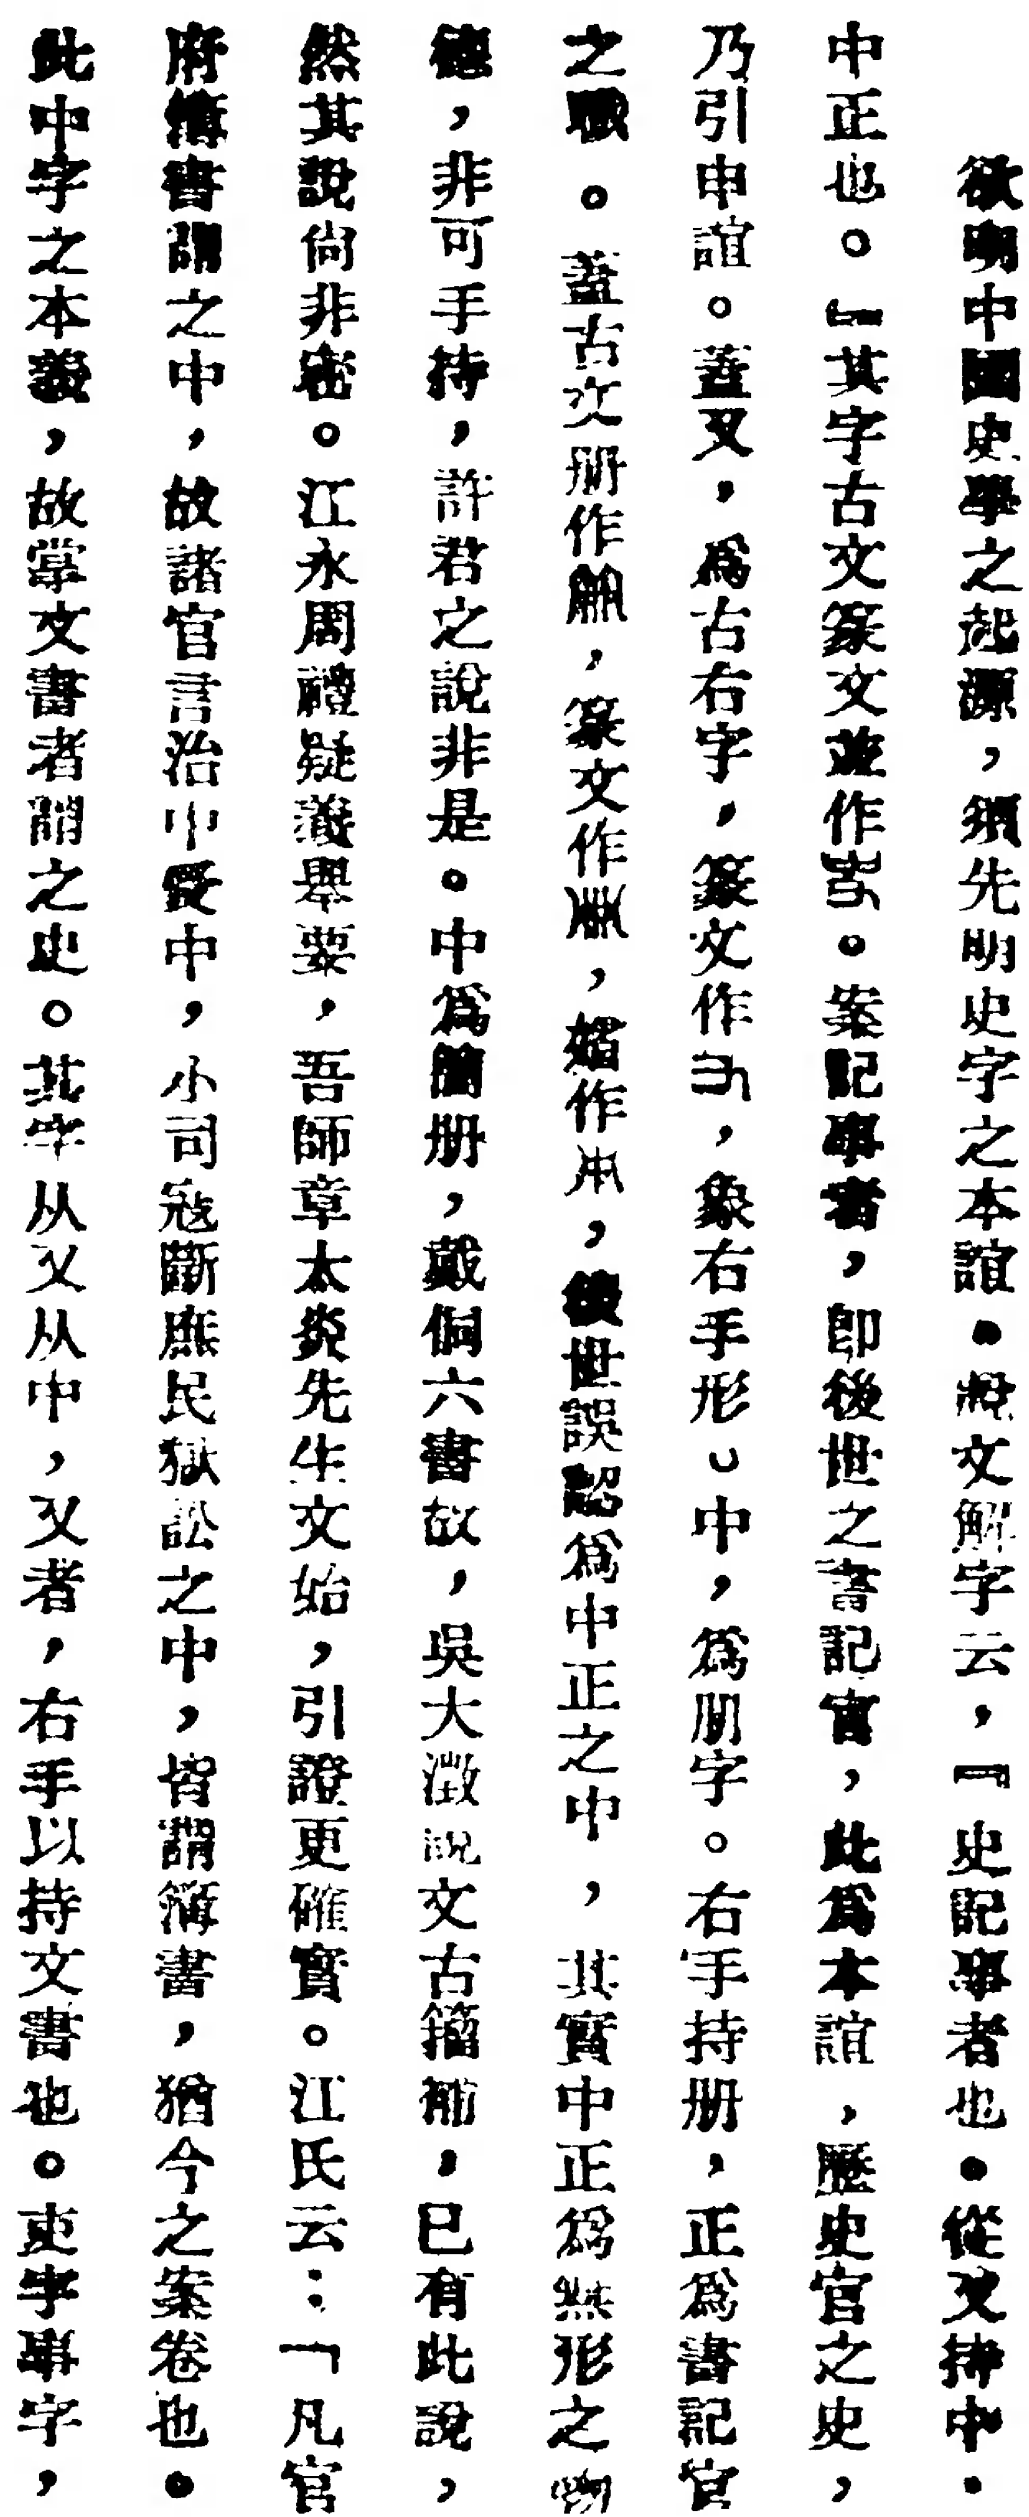 欲明中國史學之起源，須先明史字之本誼。說文解字云，『史記事者也。從又持中。
中正也。』其字古文篆文並作。案記事者，即後世之書記官，此爲本誼，歷史官之史，
乃引申誼。蓋又，爲古右字，篆文作，象右手形。中，爲册字。右手持册，正爲書記官
之職。蓋古文册作，篆文作，婿作，後世誤認爲中正之中，其實中正爲無形之物
德，非可手持，許君之說非是。中爲簡册，戴侗六書故，吳大澂說文古籀補，已有此說，
然其說尚非密。江永周禮疑義舉要，吾師章太炎先生文始，引證更確實。江氏云：「凡官
府簿書謂之中，故諸官言治中受中，小司寇斷庶民獄訟之中，皆謂簿書，猶今之案卷也。
此中字之本義，故掌文書者謂之史。其字从又从中，又者，右手以持文書也。吏字事字，